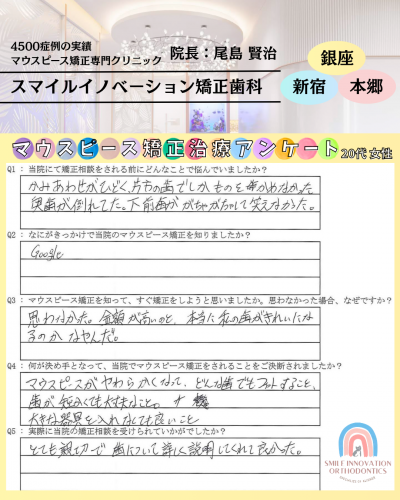 4500症例の実績
マウスピース矯正専門クリニック
院長：尾島 賢治
スマイルイノベーション矯正歯科
銀座
新宿
本郷
マウスピース矯正治療アンケート 20代 女性
Q1 : 当院にて矯正相談をされる前にどんなことで悩んでいましたか?
かみあわせがひどく、片方の歯でしかものを噛めなかった
奥歯が倒れてた。下前歯がガチャガチャして笑えなかった。
Q2 : なにがきっかけで当院のマウスピース矯正を知りましたか?
Google
Q3 : マウスピース矯正を知って、すぐ矯正をしようと思いましたか。思わなかった場合、なぜですか?
思わなかった。金額が高いのと、本当に私の歯がきれいにな
るのかなやんだ。
Q4 : 何が決め手となって、当院でマウスピース矯正をされることをご決断されましたか?
マウスピースがやわらかくなって、どんな歯でもフィットすること、
歯が短かくても大丈夫なこと。
大きな器具を入れなくても良いこと
Q5 : 実際に当院の矯正相談を受けられていかがでしたか?
とても親切で歯について詳しく説明してくれて良かった。
SMILE INNOVATION
ORTHODONTICS